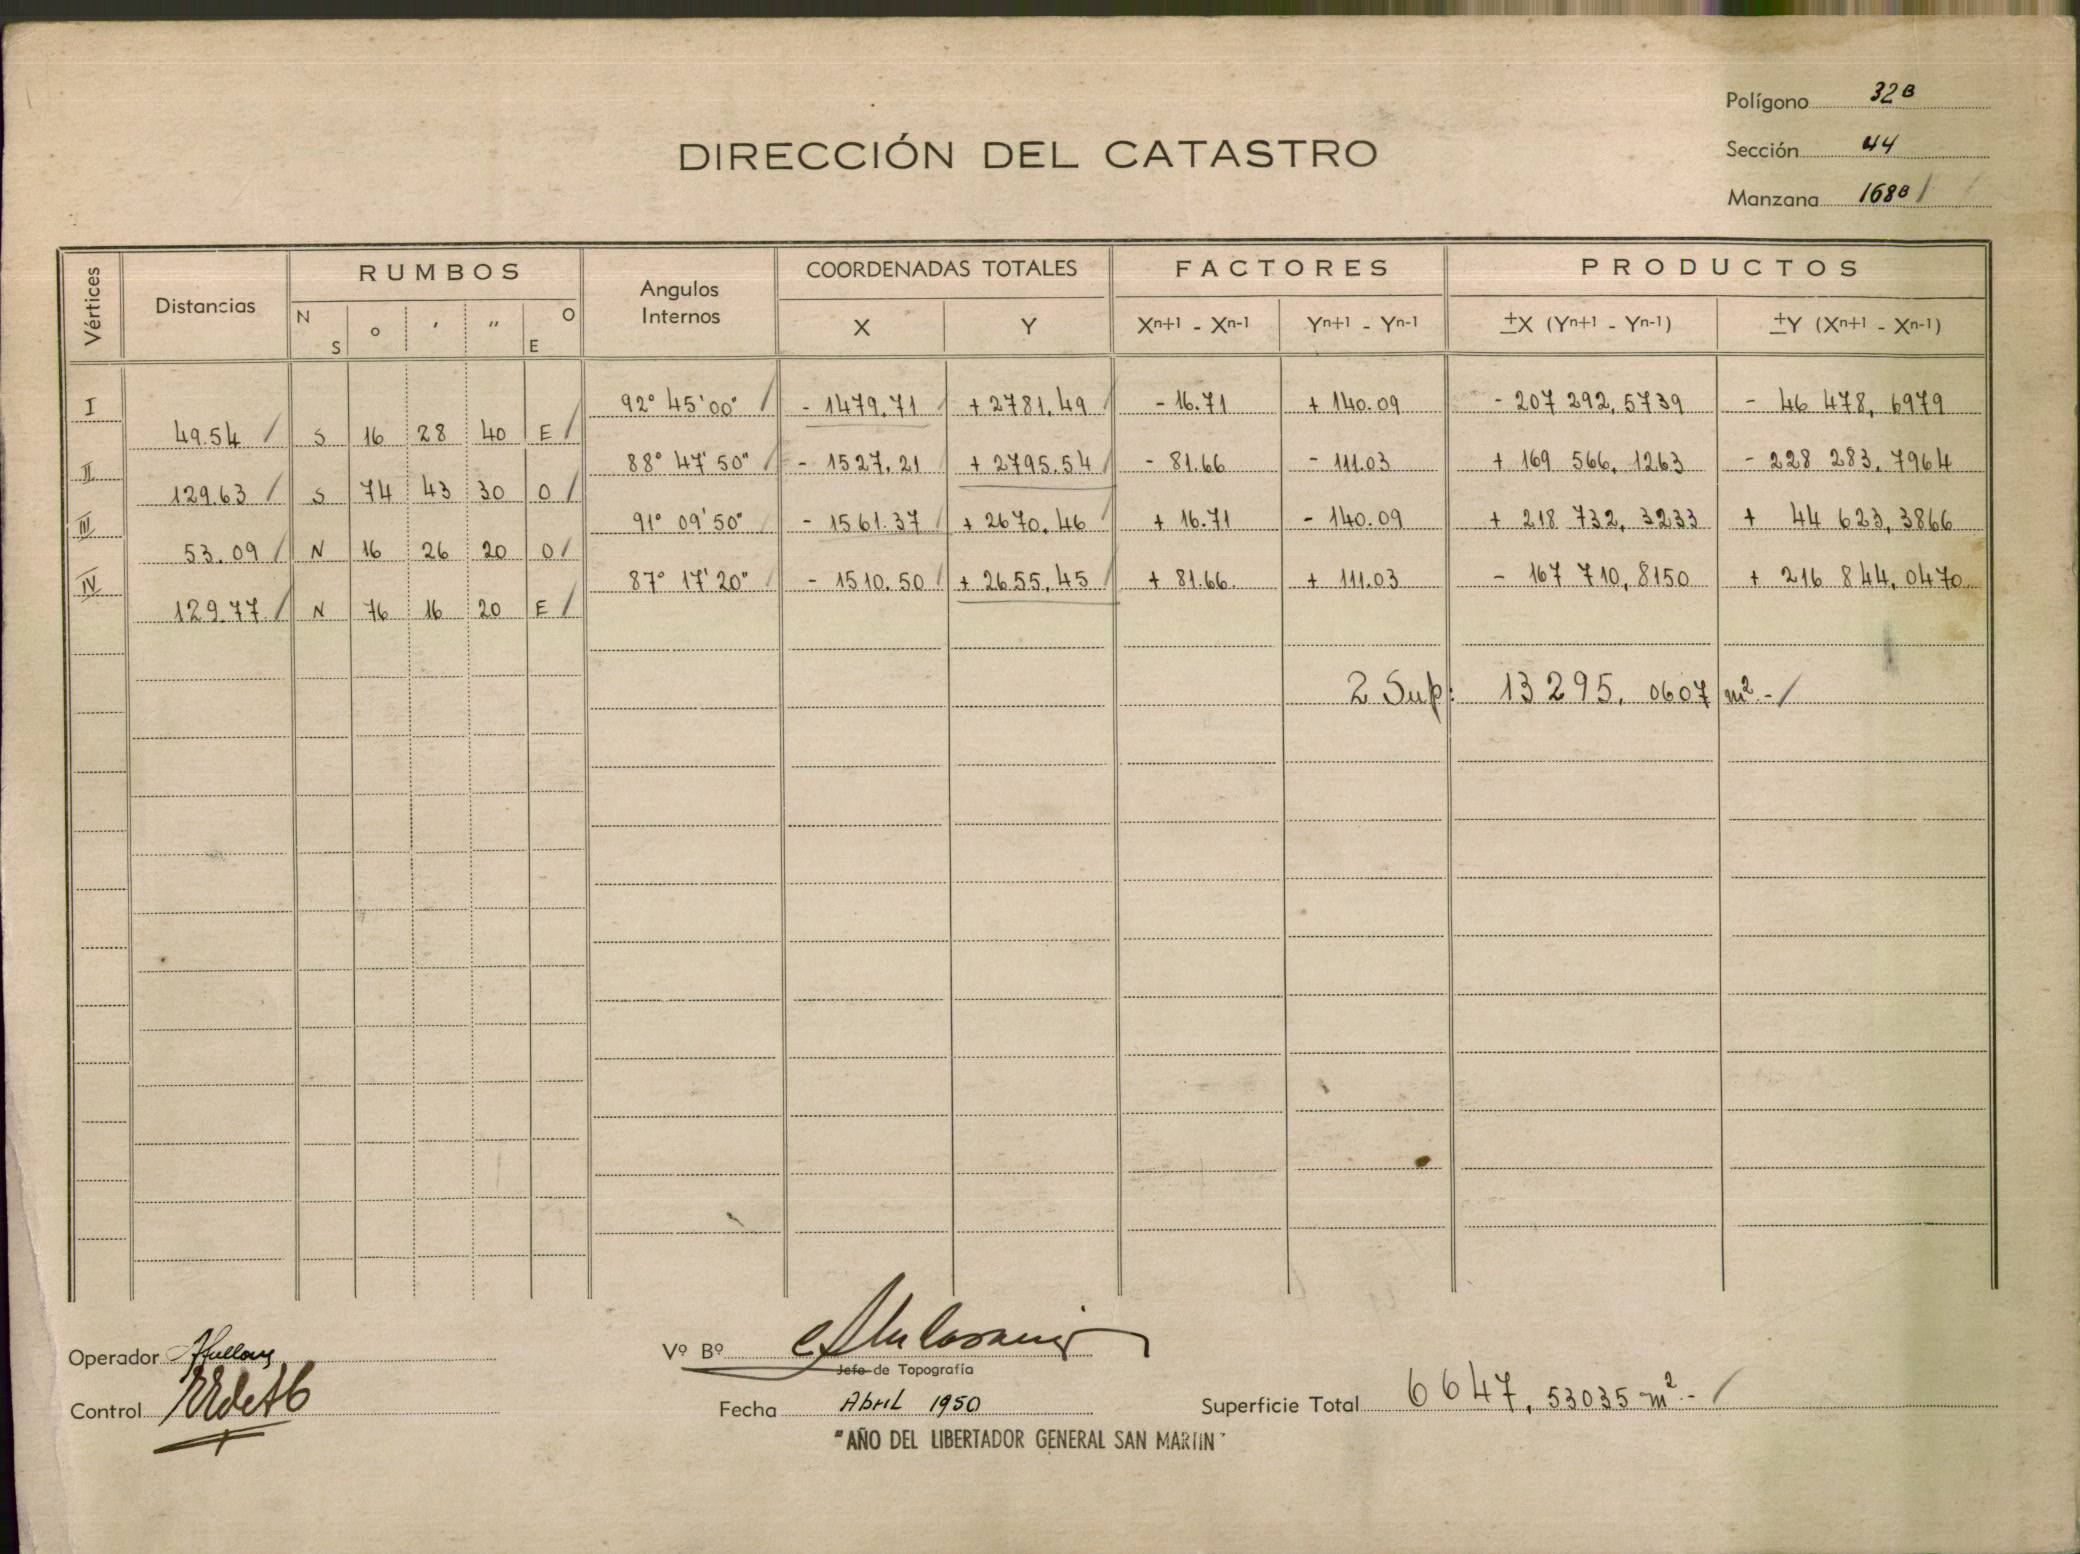 Polígono 32B
Sección 44
Manzana 168B /
DIRECCIÓN DEL CATASTRO
Vértices Distancias RUMBOS Angulos Internos COORDENADAS TOTALES FACTORES PRODUCTOS
N S o ' " O E X Y Xn+1 - Xn-1 Yn+1 - Yn-1 ±X (Yn+1 - Yn-1) ±Y (Xn+1 - Xn-1)
I 92° 45' 00" / - 1479.71 / + 2781.49 / - 16.71 + 140.09 - 207 292,5739 - 46 478,6979
49.54 / S 16 28 40 E /
II 88° 47' 50" / - 1527.21 + 2795.54 / - 81.66 - 111.03 + 169 566,1263 - 228 283,7964
129.63 / S 74 43 30 O /
III 91° 09' 50" / - 1561.37 / + 2670.46 / + 16.71 - 140.09 + 218 732,3233 + 44 623,3866
53.09 / N 16 26 20 O /
IV 87° 17' 20" / - 1510.50 / + 2655.45 / + 81.66. + 111.03 - 167 710,8150 + 216 844,0470
129.77 / N 76 16 20 E /
2 Sup: 13295, 0607 m² - /
Operador
Control
Vº Bº
Jefe de Topografía
Fecha Abril 1950
Superficie Total 6647, 53035 m² - /
"AÑO DEL LIBERTADOR GENERAL SAN MARTIN"